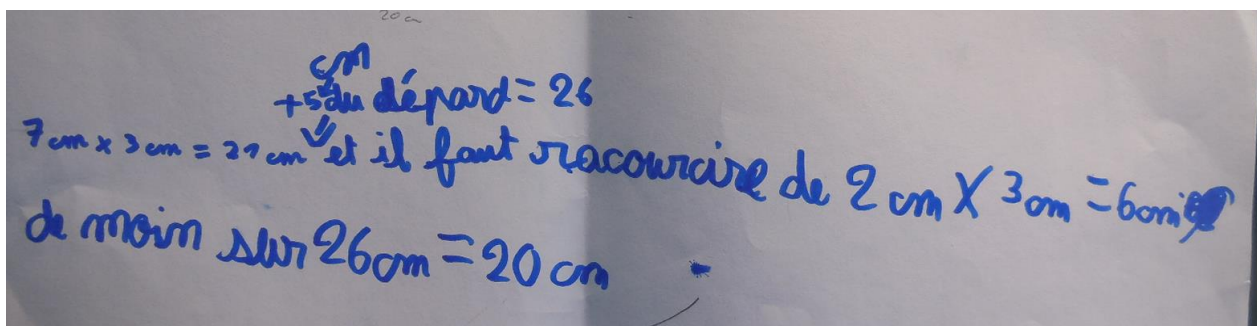 20 cm
cm
+5 du départ = 26
7 cm x 3 cm = 21 cm et il faut racourcire de 2 cm X 3 cm = 6 cm
de moin sur 26 cm = 20 cm